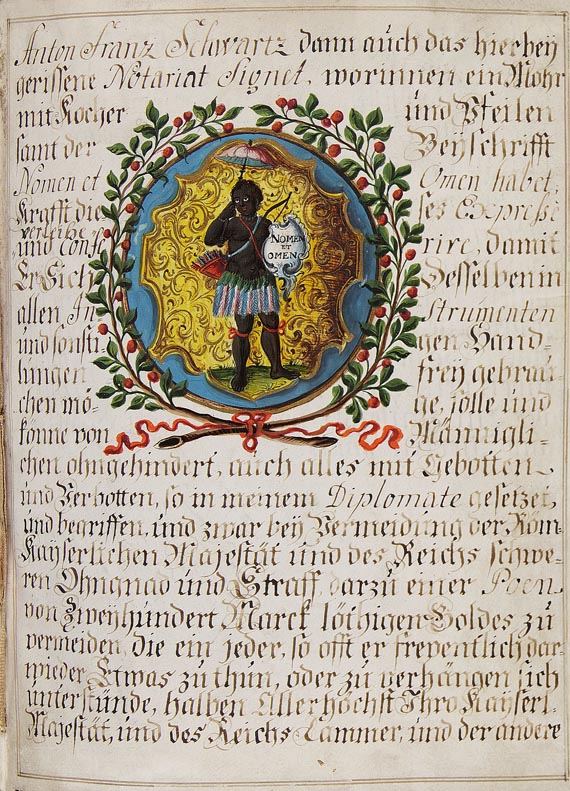 Anton Franz Schwartz dann auch das hierbey
gerissene Notariat Signet, worinnen ein Mohr
mit Kocher und Pfeilen
samt der Beyschrifft
Nomen et Omen habet,
Krafft dieses Expresse
verleihe
und conferire, damit
Er Sich Desselben in
allen Instrumenten
und sonstigen Hand-
lungen frey gebrau-
chen mö- ge, solle und
könne von Männigli-
chen ohngehindert, auch alles mit Gebotten
und Verbotten, so in meinem Diplomate gesetzet,
und begriffen, und zwar bey Vermeidung der Röm.
Kayserlichen Majestät und des Reichs schwe-
ren Ohngnad und Straff, darzu einer Poen
von Zweyhundert Marck löthigen Goldes zu
vermeiden, die ein jeder, so offt er freventlich dar-
wieder Etwas zu thun, oder zu verhängen sich
unterstünde, halben Allerhöchst Ihro Kayserl.
Majestät, und des Reichs Cammer, und der andere
NOMEN
ET
OMEN